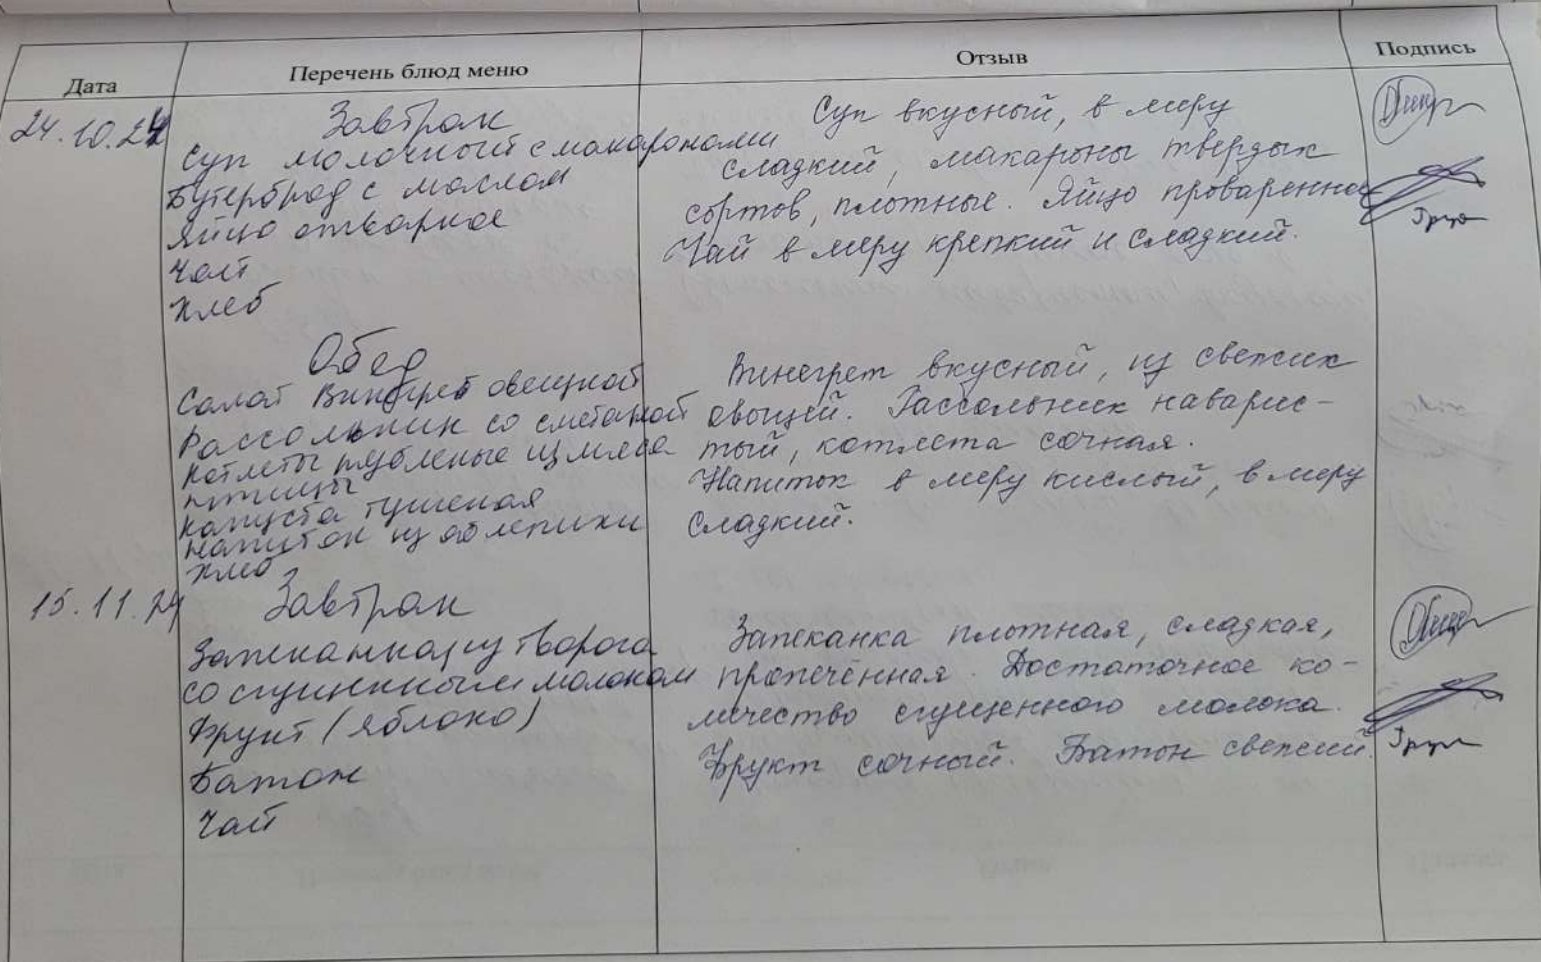 Дата
Перечень блюд меню
Отзыв
Подпись
24.10.24
Завтрак
Суп молочный с макаронами
Бутерброд с маслом
Яйцо отварное
Чай
Хлеб
Суп вкусный, в меру
сладкий, макароны твердых
сортов, плотные. Яйцо проваренное
Чай в меру крепкий и сладкий.
Обед
Салат Винегрет овощной
Рассольник со сметаной
Котлеты рубленые из мяса
птицы
Капуста тушеная
Напиток из облепихи
Хлеб
Винегрет вкусный, из свежих
овощей. Рассольник наварис-
тый, котлета сочная.
Напиток в меру кислый, в меру
сладкий.
15.11.24
Завтрак
Запеканка из творога
со сгущенным молоком
Фрукт (яблоко)
Батон
Чай
Запеканка плотная, сладкая,
пропечённая. Достаточное ко-
личество сгущенного молока.
Фрукт сочный. Батон свежий.